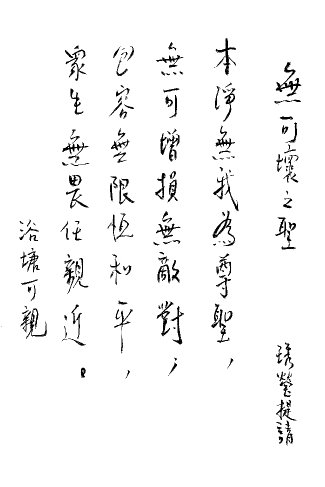 無可壞之聖
琇瑩提請
本淨無我為尊聖，
無可增損無敵對；
包容無限恆和平，
眾生無畏任親近。
浴塘可親